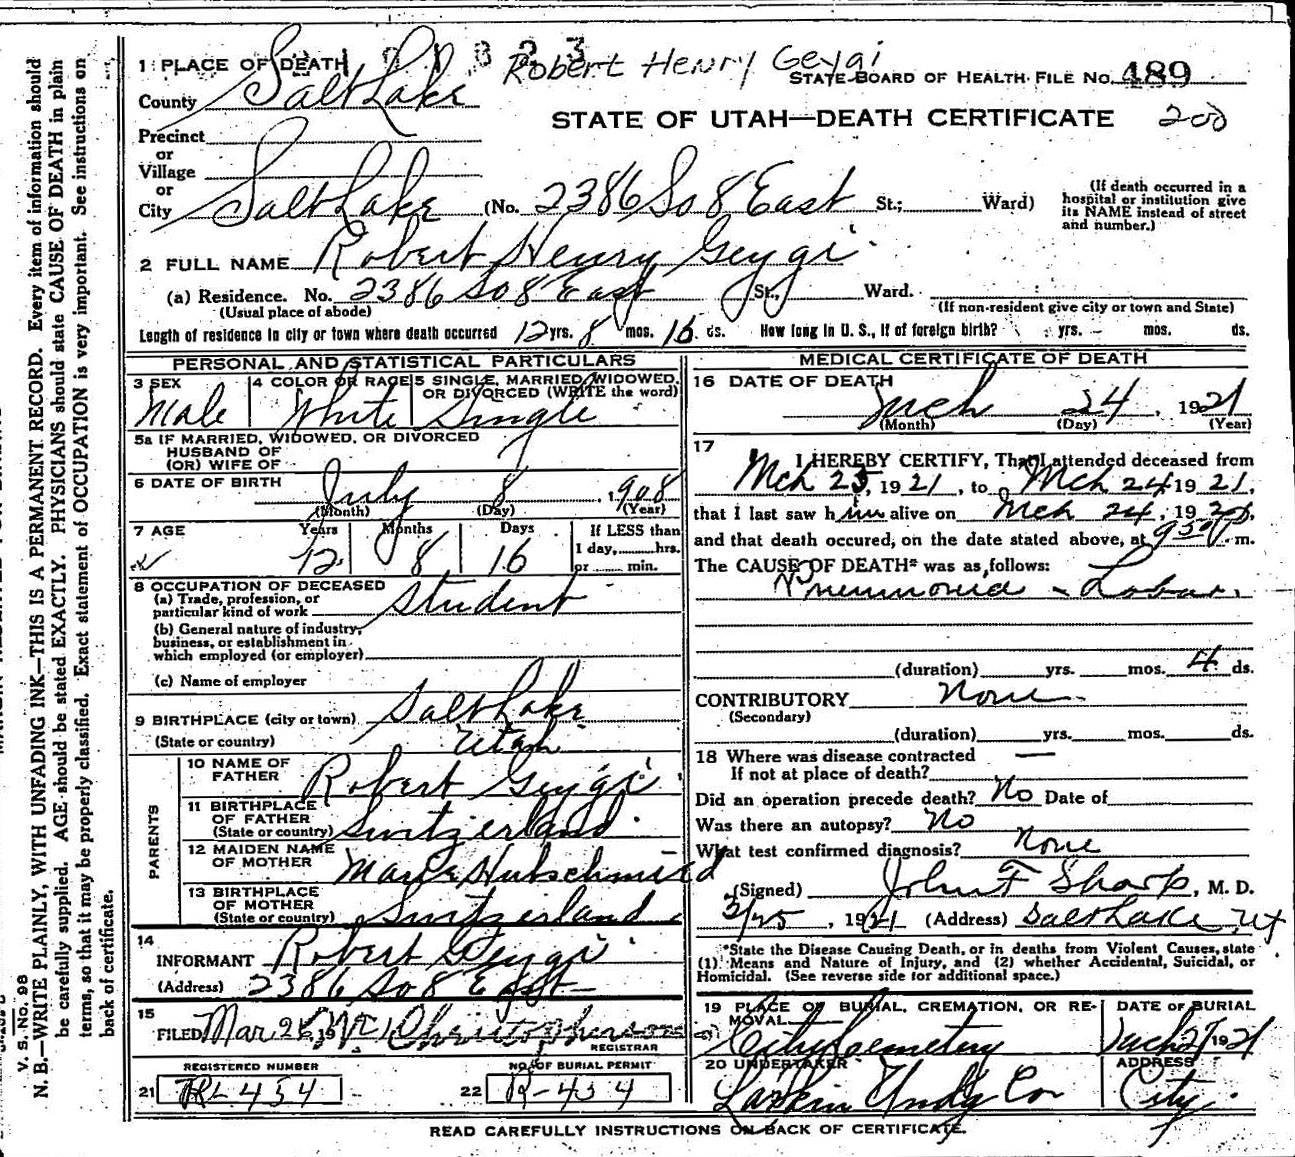 Robert Henry Geygi
1 PLACE OF DEATH
STATE BOARD OF HEALTH FILE No. 489
County Salt Lake
STATE OF UTAH—DEATH CERTIFICATE 200
Precinct
or
Village
or
City Salt Lake (No. 2386 So 8 East St.; Ward)
(If death occurred in a hospital or institution give its NAME instead of street and number.)
2 FULL NAME Robert Henry Geygi
(a) Residence. No. 2386 So 8 East St., Ward.
(Usual place of abode) (If non-resident give city or town and State)
Length of residence in city or town where death occurred 12 yrs. 8 mos. 16 ds. How long in U. S., if of foreign birth? yrs. mos. ds.
PERSONAL AND STATISTICAL PARTICULARS
3 SEX Male
4 COLOR OR RACE White
5 SINGLE, MARRIED, WIDOWED, OR DIVORCED (WRITE the word) Single
5a IF MARRIED, WIDOWED, OR DIVORCED
HUSBAND OF
(OR) WIFE OF
6 DATE OF BIRTH July 8, 1908
(Month) (Day) (Year)
7 AGE Years Months Days If LESS than
12 8 16 1 day, hrs.
or min.
8 OCCUPATION OF DECEASED
(a) Trade, profession, or
particular kind of work Student
(b) General nature of industry,
business, or establishment in
which employed (or employer)
(c) Name of employer
9 BIRTHPLACE (city or town) Salt Lake
(State or country) Utah
PARENTS
10 NAME OF FATHER Robert Geygi
11 BIRTHPLACE OF FATHER (State or country) Switzerland
12 MAIDEN NAME OF MOTHER Marie Hubschmied
13 BIRTHPLACE OF MOTHER (State or country) Switzerland
14 INFORMANT Robert Geygi
(Address) 2386 So 8 East
15 FILED Mar 26, 19 Christopherson
REGISTRAR
REGISTERED NUMBER
21 454
NO. OF BURIAL PERMIT
22 R-434
MEDICAL CERTIFICATE OF DEATH
16 DATE OF DEATH
Mch 24, 1921
(Month) (Day) (Year)
17 I HEREBY CERTIFY, That I attended deceased from
Mch 23, 1921, to Mch 24 1921,
that I last saw him alive on Mch 24, 19
and that death occured, on the date stated above, at 930 m.
The CAUSE OF DEATH* was as follows:
Pneumonia - Lobar.
(duration) yrs. mos. 4 ds.
CONTRIBUTORY None
(Secondary)
(duration) yrs. mos. ds.
18 Where was disease contracted —
If not at place of death?
Did an operation precede death? No Date of
Was there an autopsy? No
What test confirmed diagnosis? None
(Signed) John F Sharp, M. D.
3/25, 1921 (Address) Salt Lake, Ut
*State the Disease Causing Death, or in deaths from Violent Causes, state
(1) Means and Nature of Injury, and (2) whether Accidental, Suicidal, or
Homicidal. (See reverse side for additional space.)
19 PLACE OF BURIAL, CREMATION, OR REMOVAL City Cemetery
DATE OF BURIAL Mch 27 1921
20 UNDERTAKER Larkin Undg Co
ADDRESS City
READ CAREFULLY INSTRUCTIONS ON BACK OF CERTIFICATE.
V. S. No. 98
N. B.—WRITE PLAINLY, WITH UNFADING INK—THIS IS A PERMANENT RECORD. Every item of information should
be carefully supplied. AGE should be stated EXACTLY. PHYSICIANS should state CAUSE OF DEATH in plain
terms, so that it may be properly classified. Exact statement of OCCUPATION is very important. See instructions on
back of certificate.